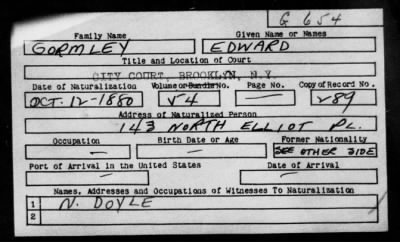 G 654
Family Name Given Name or Names
GORMLEY EDWARD
Title and Location of Court
CITY COURT, BROOKLYN, N.Y.
Date of Naturalization Volume or Bundle No. Page No. Copy of Record No.
OCT. 12-1880 V4 — V89
Address of Naturalized Person
143 NORTH ELLIOT PL.
Occupation Birth Date or Age Former Nationality
— — SEE OTHER SIDE
Port of Arrival in the United States Date of Arrival
— —
Names, Addresses and Occupations of Witnesses To Naturalization
1 N. DOYLE
2